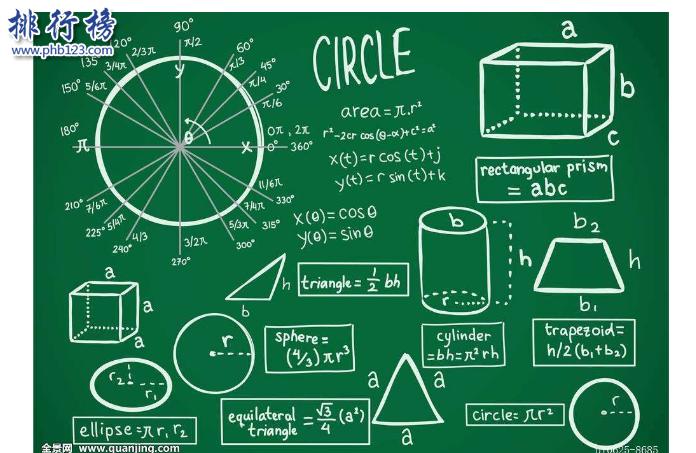 排行榜
www.phb123.com
CIRCLE
90°
π/2
120°
2/3π
60°
π/3
135°
3/4π
45°
π/4
150°
5/6π
30°
π/6
180°
π
y
θ
x
0π, 2π
0°
360°
210°
7/6π
225°
5/4π
240°
4/3
270°
3/2π
300°
5/3π
315°
7/4π
330°
11/6π
area=π.r²
r²-2cr cos(θ-α)+c²=a²
x(t)=r cos(t)+j
y(t)=r sin(t)+k
x(θ)=cosθ
y(θ)=sinθ
a
b
c
rectangular prism
= abc
a
a
a
h
b
triangle= 1/2 bh
b
r
h
cylinder
=bh=π²rh
b₂
h
h
b₁
trapezoid=
h/2(b₁+b₂)
r
sphere=
(4/3)πr³
r₂
r₁
ellipse=πr₁r₂
equilateral
triangle = √3/4 (a²)
a
a
a
circle=πr²
r
全景网 www.quanjing.com